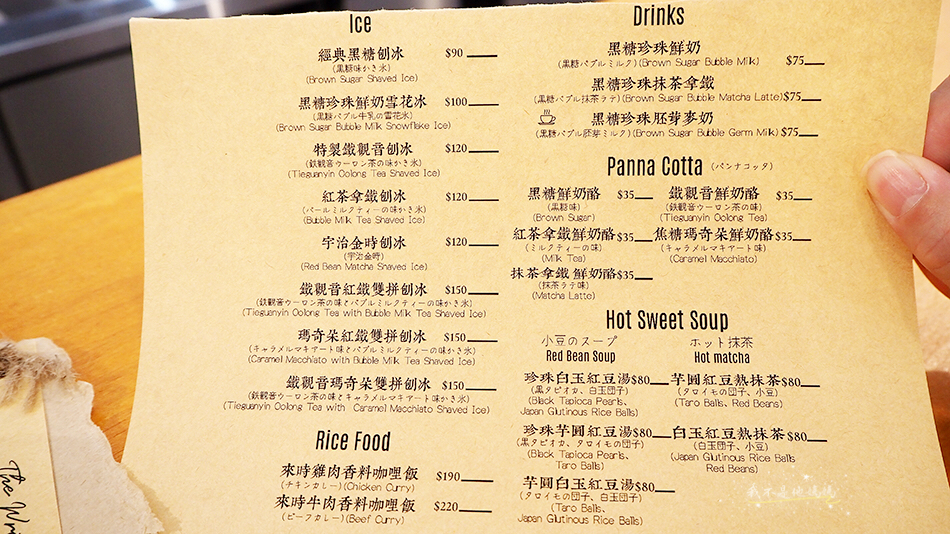 Ice
經典黑糖刨冰 $90
(黒糖味かき氷)
(Brown Sugar Shaved Ice)
黑糖珍珠鮮奶雪花冰 $100
(黒糖バブル牛乳の雪花氷)
(Brown Sugar Bubble Milk Snowflake Ice)
特製鐵觀音刨冰 $120
(鉄観音ウーロン茶の味かき氷)
(Tieguanyin Oolong Tea Shaved Ice)
紅茶拿鐵刨冰 $120
(パールミルクティーの味かき氷)
(Bubble Milk Tea Shaved Ice)
宇治金時刨冰 $120
(宇治金時)
(Red Bean Matcha Shaved Ice)
鐵觀音紅鐵雙拼刨冰 $150
(鉄観音ウーロン茶の味とバブルミルクティーの味かき氷)
(Tieguanyin Oolong Tea with Bubble Milk Tea Shaved Ice)
瑪奇朵紅鐵雙拼刨冰 $150
(キャラメルマキアート味とバブルミルクティーの味かき氷)
(Caramel Macchiato with Bubble Milk Tea Shaved Ice)
鐵觀音瑪奇朵雙拼刨冰 $150
(鉄観音ウーロン茶の味とキャラメルマキアート味かき氷)
(Tieguanyin Oolong Tea with Caramel Macchiato Shaved Ice)
Rice Food
來時雞肉香料咖哩飯 $190
(チキンカレー)(Chicken Curry)
來時牛肉香料咖哩飯 $220
(ビーフカレー)(Beef Curry)
Drinks
黑糖珍珠鮮奶
(黒糖バブルミルク)(Brown Sugar Bubble Milk) $75
黑糖珍珠抹茶拿鐵
(黒糖バブル抹茶ラテ)(Brown Sugar Bubble Matcha Latte) $75
黑糖珍珠胚芽麥奶
(黒糖バブル胚芽ミルク)(Brown Sugar Bubble Germ Milk) $75
Panna Cotta (パンナコッタ)
黑糖鮮奶酪 $35 鐵觀音鮮奶酪 $35
(黒糖味) (鉄観音ウーロン茶の味)
(Brown Sugar) (Tieguanyin Oolong Tea)
紅茶拿鐵鮮奶酪 $35 焦糖瑪奇朵鮮奶酪 $35
(ミルクティーの味) (キャラメルマキアート味)
(Milk Tea) (Caramel Macchiato)
抹茶拿鐵 鮮奶酪 $35
(抹茶ラテ味)
(Matcha Latte)
Hot Sweet Soup
小豆のスープ ホット抹茶
Red Bean Soup Hot matcha
珍珠白玉紅豆湯 $80 芋圓紅豆熱抹茶 $80
(黒タピオカ、白玉団子) (タロイモの団子、小豆)
(Black Tapioca Pearls, (Taro Balls, Red Beans)
Japan Glutinous Rice Balls)
珍珠芋圓紅豆湯 $80 白玉紅豆熱抹茶 $80
(黒タピオカ、タロイモの団子) (白玉団子、小豆)
(Black Tapioca Pearls, (Japan Glutinous Rice Balls
Taro Balls) Red Beans)
芋圓白玉紅豆湯 $80
(タロイモの団子、白玉団子)
(Taro Balls,
Japan Glutinous Rice Balls)
The Wri